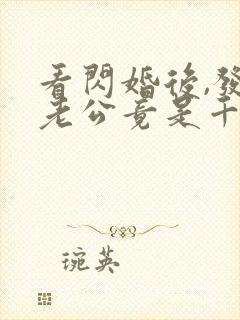 看閃婚後,發
老公竟是千
琬英